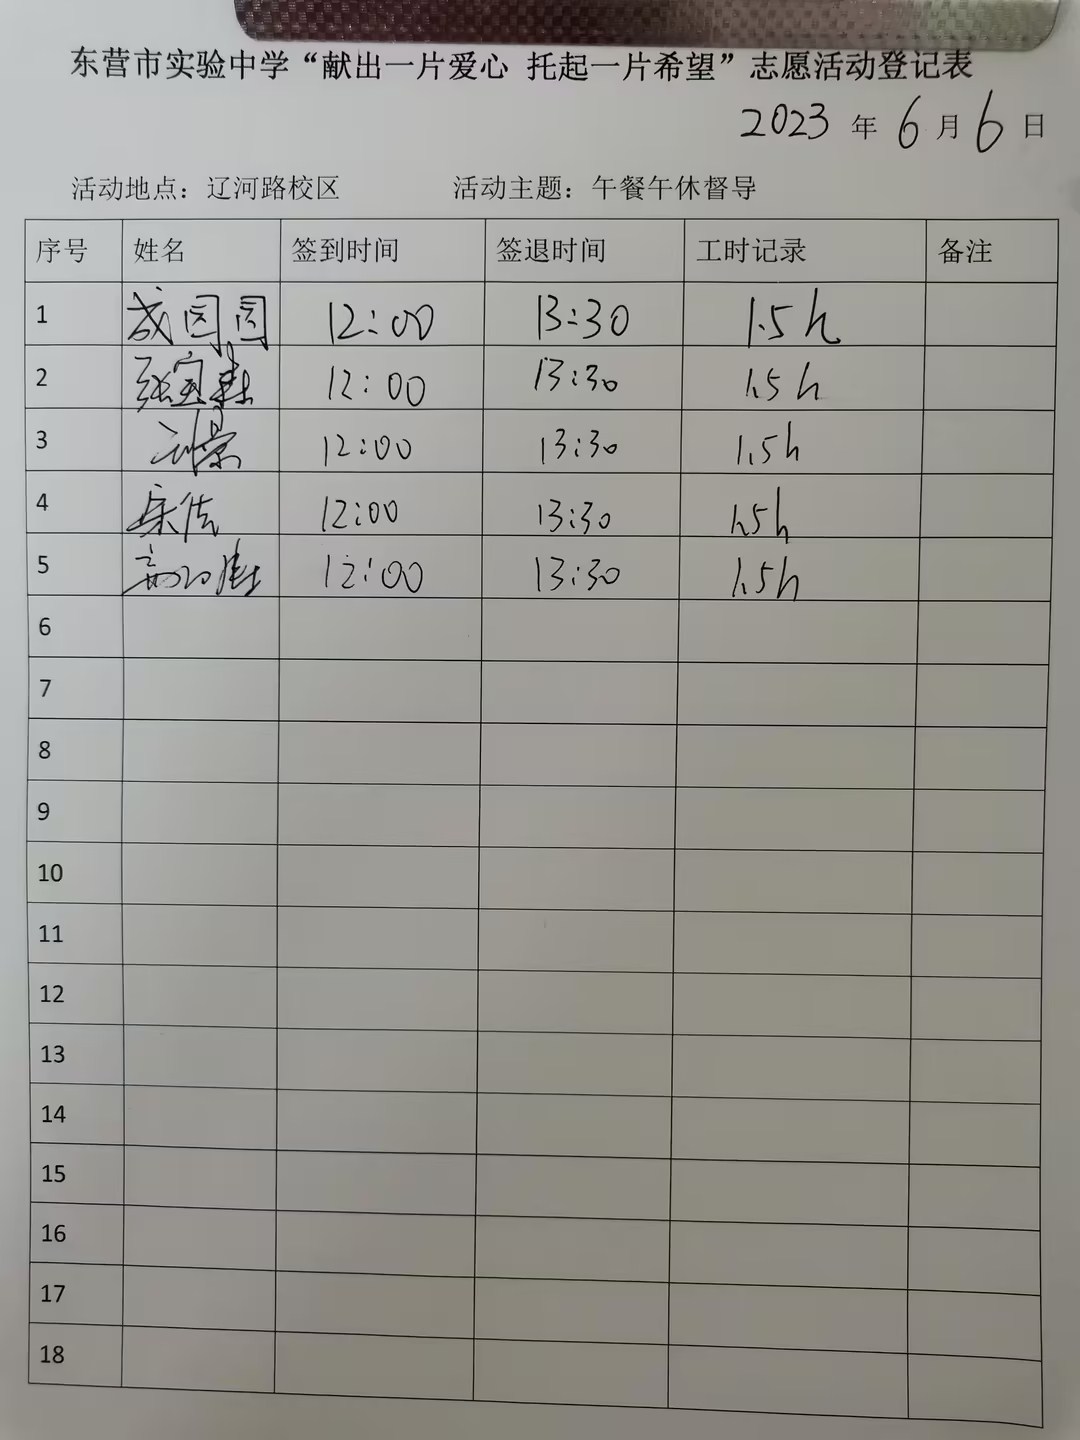 东营市实验中学“献出一片爱心 托起一片希望”志愿活动登记表
2023 年 6 月 6 日
活动地点：辽河路校区 活动主题：午餐午休督导
序号 姓名 签到时间 签退时间 工时记录 备注
1 12:00 13:30 1.5h
2 12:00 13:30 1.5h
3 12:00 13:30 1.5h
4 12:00 13:30 1.5h
5 12:00 13:30 1.5h
6
7
8
9
10
11
12
13
14
15
16
17
18